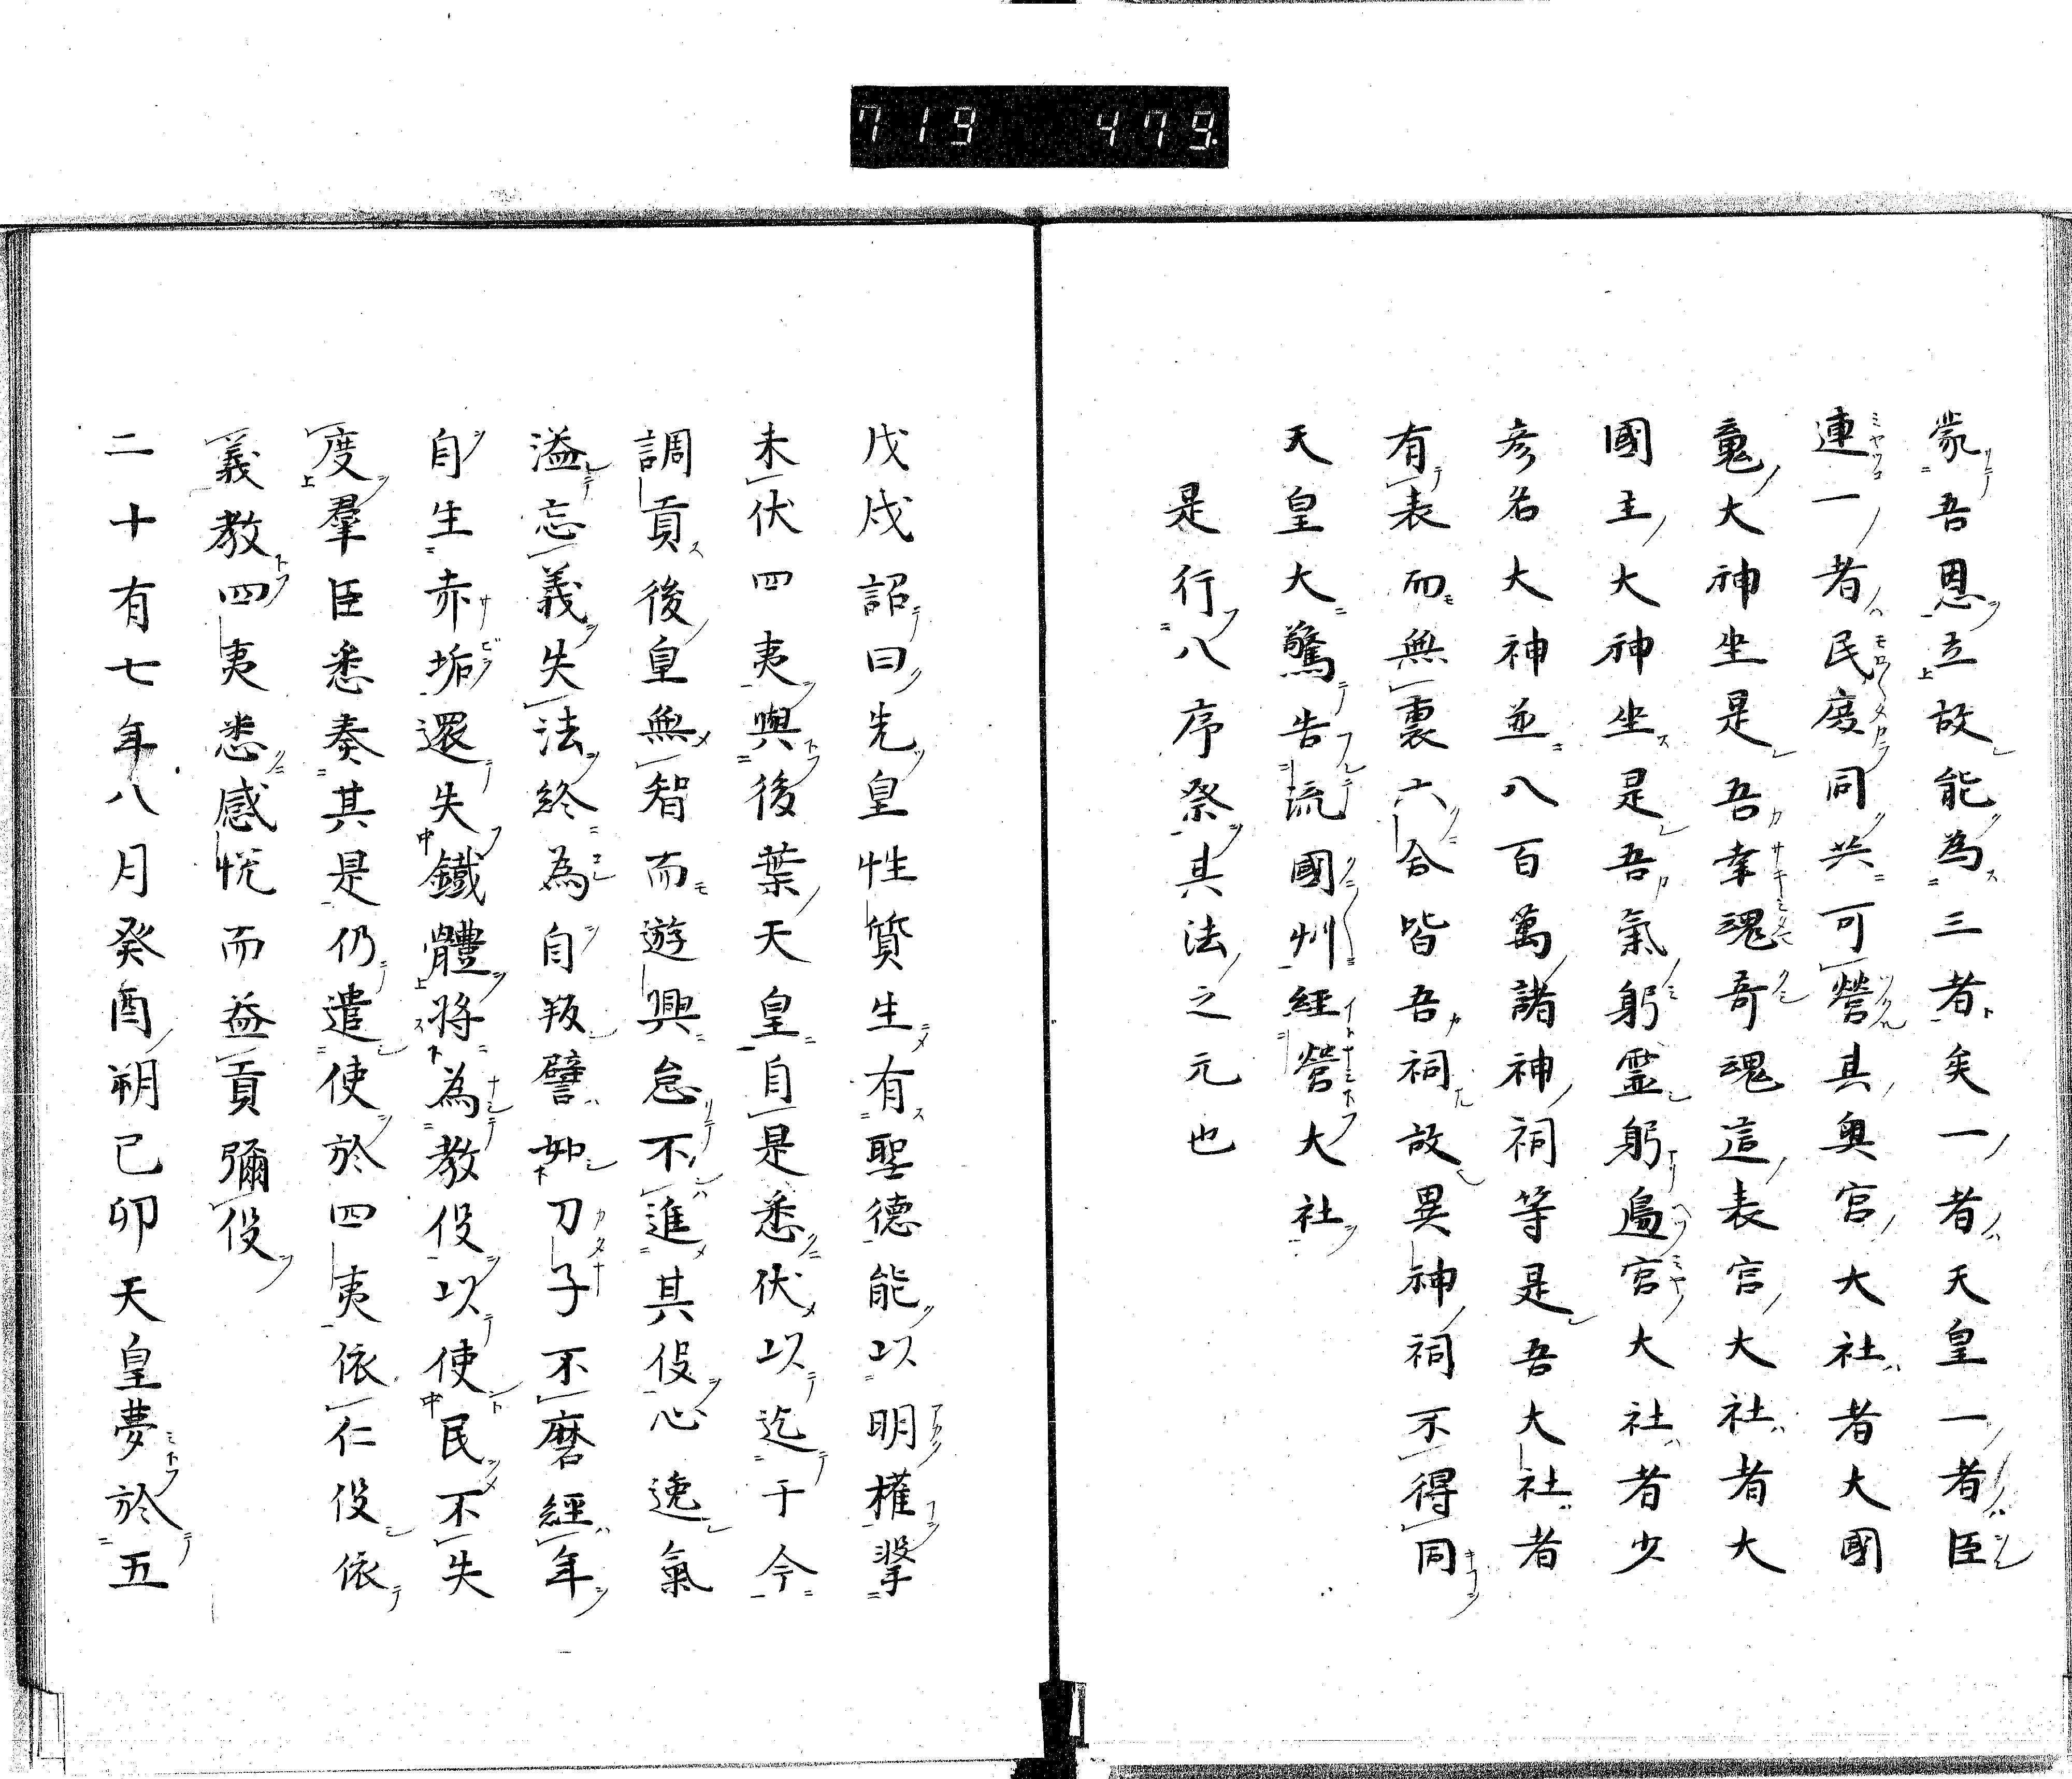 719 479
蒙吾恩立故能為三者矣一者天皇一者臣
連一者民度同共可營其奥宮大社者大國
魂大神坐是吾幸魂奇魂這表宮大社者大
國主大神坐是吾氣躬霊躬邊宮大社者少
彦名大神並八百萬諸神祠等是吾大社者
有表而無裏六合皆吾祠故異神祠不得同
天皇大驚告流國州經營大社
是行八序祭其法之元也
戊戌詔曰先皇性質生有聖德能以明權掌
未伏四夷與後葉天皇自是悉伏以迄于今
調貢後皇無智而遊興怠不進其役心逸氣
溢忘義失法終為自叛譬如刀子不磨經年
自生赤垢還失鐵體將為教役以使民不失
度羣臣悉奏其是仍遣使於四夷依仁役依
義教四夷悉感悦而益貢彌役
二十有七年八月癸酉朔己卯天皇夢於五